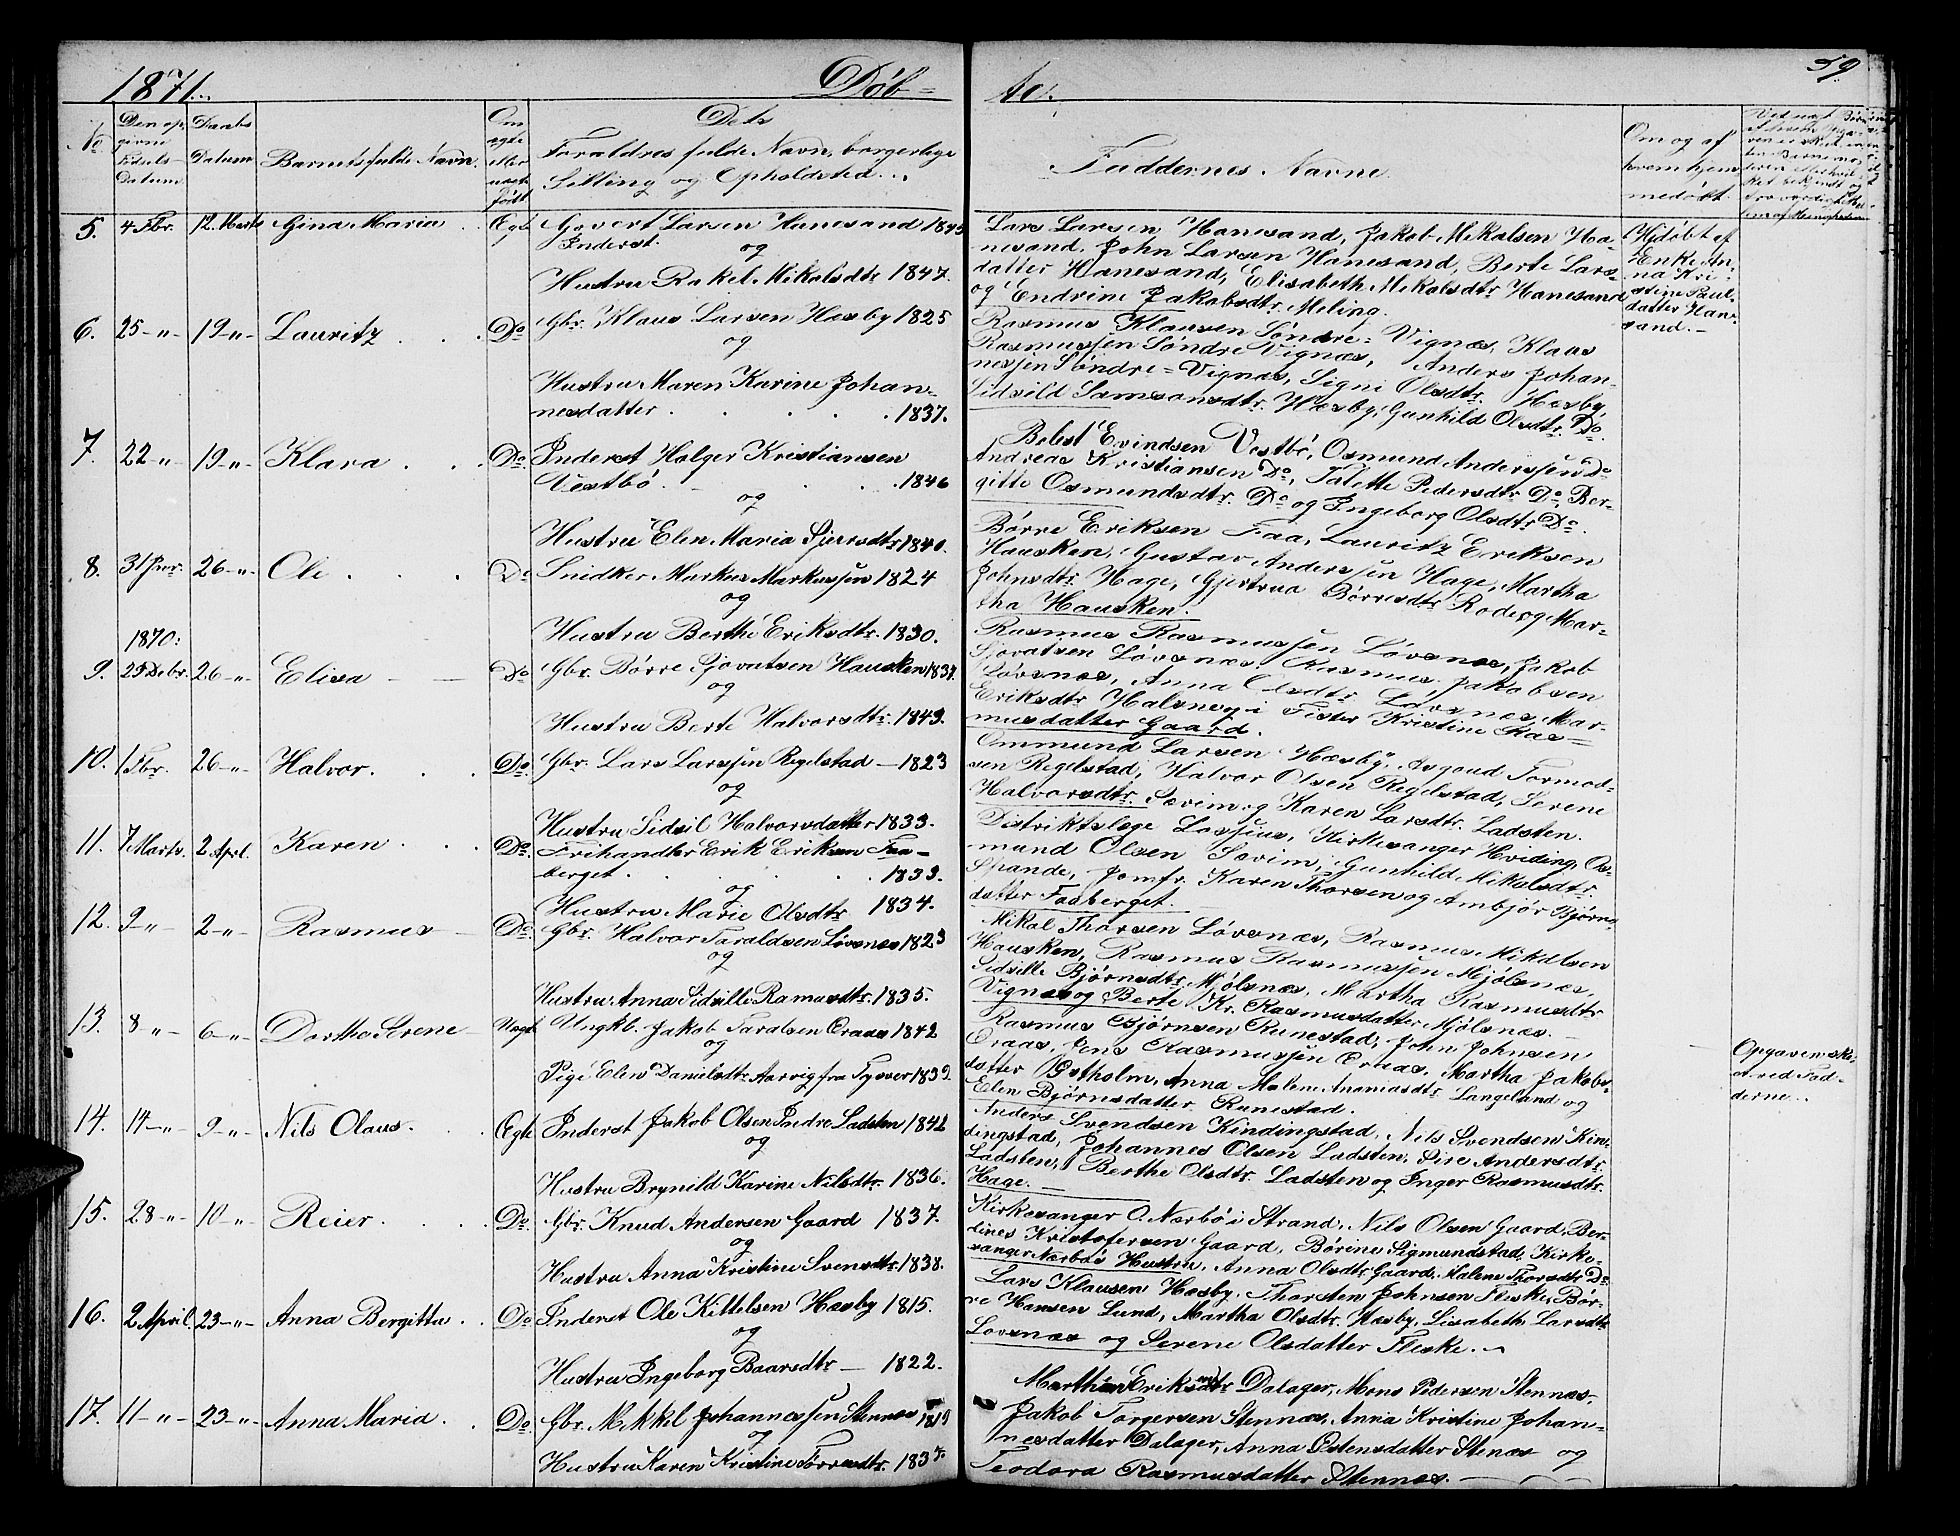 1871.
Døb=
te.
59
No
Den op-
givne
Fødsels-
Datum
Daabs
Datum
Barnets fulde Navn.
Om
ægte
eller
uægte
født
Dets
Forældres fulde Navn, borgerlige
Stilling og Opholdsted.
Faddernes Navne.
Om og af
hvem hjem-
medøbt.
5. 4 Fbr. 12. Marts Gina Maria Ægte
Govert Larsen Hanesand 1845
Inderst. og
Hustru Rakel Mikalsdtr. 1847.
Lars Larsen Hanesand, Jakob Mikalsen Ha-
nesand, John Larsen Hanesand, Berte Lars-
datter Hanesand, Elisabeth Mikalsdtr. Hanesand
og Endrine Jakobsdtr. Meling.
Hjdøbt af
Enke An-
na Kri-
stine Paul-
datter Han-
sand.
6. 25 -"- 19 -"- Lauritz Do
Gbr. Klaus Larsen Hæsby 1825
og
Hustru Maren Karine Johan-
nesdatter 1837.
Rasmus Klausen Søndre=Vignæs, Klaus
Rasmussen Søndre Vignæs, Anders Johan-
nessen Søndre=Vignæs, Signi Olsdtr. Hæsby,
Sidsild Samsonsdtr. Hæsby, Gunhild Olsdtr. Do.
7. 22 -"- 19 -"- Klara Do
Inderst Holger Kristiansen
Vestbø 1846
og
Hustru Elen Maria Sjursdtr 1840.
Bebest Evindsen Vestbø, Osmund Anderssen Do
Andreas Kristiansen Do, Talette Pedersdtr. Do, Ber-
gitte Osmundsdtr. Do og Ingeborg Olsdtr. Do.
8. 31 Jnr. 26 -"- Ole Do
Snidker Markus Markussen 1824
og
Hustru Berthe Eriksdtr. 1830.
Børre Eriksen Faa, Lauritz Eriksen
Hausken, Gustav Anderssen Hage, Martha
Johnsdtr. Hage, Gjertrua Børresdtr. Rode og Mar-
tha Hausken.
1870:
9. 25 Debr. 26 -"- Elisa Do
Gbr. Børre Sjovatsen Hausken 1837.
og
Hustru Berte Halvorsdtr. 1843.
Rasmus Rasmussen Løvsnæs, Jakob
Sjovatsen Løvsnæs, Rasmus Jakobsen
Løvsnæs, Anna Olsdtr. Løvsnæs, Mar-
Eriksdtr. Halsnøy i Fister Kristine Ras-
musdatter Gaard.
10. 1 Fbr. 26 -"- Halvor. Do
Gbr. Lars Larssen Regelstad 1823
og
Hustru Sidsil Halvorsdatter 1833.
Ommund Larsen Hæsby, Asgoud Tormod-
sen Regelstad, Halvor Olsen Regelstad, Serene
Halvorsdtr. Sævim og Karen Larsdtr. Ladsten.
11. 7 Marts. 2 April. Karen Do
Frihandler Erik Eriksen Faa-
berget 1833.
og
Hustru Marie Olsdtr 1834.
Distriktslæge Lossius, Kirkesanger Hviding, Os-
mund Olsen Sævim, Gunhild Mikalsdtr.
Spande, Jomfr. Karen Thorsen og Ambjør Bjørns
datter Faaberget.
12. 9 -"- 2 -"- Rasmus Do
Gbr. Halvor Taraldsen Løvsnæs 1823
og
Hustru Anna Sidsille Ramusdtr. 1835.
Mikal Thorsen Løvsnæs, Rasmus Mikalsen
Hausken, Rasmus Rasmussen Mjølsnæs,
Sidsille Bjørnsdtr. Mjølsnæs, Martha Rasmusdtr
Vignæs og Berte Kr. Rasmusdatter Mjølsnæs.
13. 8 -"- 6 -"- Dorthe Serene Uægte
Ungkl. Jakob Taralsen Eraas 1842
og
Pige Elen Danielsdtr Aarvig fra Tysvær 1839.
Rasmus Bjørnsen Runestad, John Johnsen
Eraas, Jens Rasmussen Eraas, Martha Jakobs-
datter Østholm, Anna Malen Ananiasdtr. Langeland og
Elen Bjørnsdatter Runestad.
Opgaven ske-
et ved Fad-
derne.
14. 14 -"- 9 -"- Nils Olaus. Ægte
Inderst Jakob Olsen Indre Ladsten 1842
og
Hustru Brynild Karine Nilsdtr. 1836.
Anders Svendsen Kindingstad, Nils Svendsen Kin-
dingstad, Johannes Olsen Ladsten, Sire Andersdtr.
Ladsten, Berthe Olsdtr. Ladsten og Inger Rasmusdtr.
Hage.
15. 28 -"- 10 -"- Reier. Do
Gbr. Knud Andersen Gaard 1837.
og
Hustru Anna Kristine Svensdtr. 1838.
Kirkesanger O. Nærbø i Strand, Nils Olsen Gaard, Ber-
dines Kristofersen Gaard, Børine Sigmundstad, Kirke-
sanger Nærbøs Hustru, Anna Olsdtr. Gaard, Malene Thorsdtr. Do
16. 2 April. 23 -"- Anna Bergitta. Do
Inderst Ole Kittelsen Hæsby 1815.
og
Hustru Ingeborg Baarsdtr 1822.
Lars Klausen Hæsby, Thorsten Johnsen Fleske, Bør-
re Hansen Lund, Martha Olsdtr. Hæsby, Lisabeth Larsdtr.
Løvsnæs og Serene Olsdatter Fleske.
17. 11 -"- 23 -"- Anna Maria Do
Gbr. Mikkel Johannessen Stennæs 1819
og
Hustru Karen Kristine Torresdtr. 183
Marthin Eriksen Dalager, Mons Pedersen Stennæs,
Jakob Torgersen Stennæs, Anna Kristine Johan-
nesdatter Dalager, Anna Østensdatter Stenæs og
Teodora Rasmusdatter Stennæs.